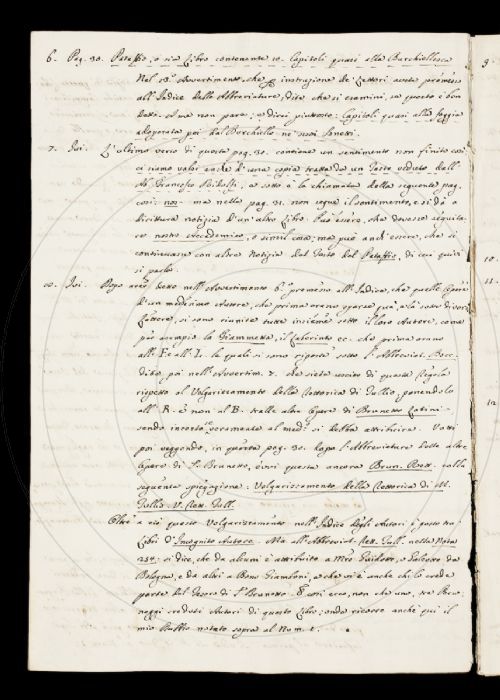 6. Pag. 30. Pataffio, o sia Libro contenente 10. Capitoli quasi alla Burchiellesca
Nel 13.º Avvertimento, che p instruzione de' Lettori avete premesso
all'Indice delle Abbreviature, dite che si esamini, se questo è ben
detto. A me non pare, e direi piuttosto: Capitoli quasi alla foggia
adoperata poi dal Burchiello ne' suoi Sonetti.
7. Ivi. L'ultimo verso di questa pag. 30. contiene un sentimento non finito così:
ci siamo valsi anche d'una copia tratta da un Testo veduto dall'
Ab. Francesco Ridolfi, e sotto è la chiamata della seguente pag.
così: noi - ma nella pag. 31. non segue il sentimento, e si dà a
dirittura notizia d'un altro Libro. Può essere, che dovesse seguita-
re: nostro Accademico, o simil cosa; ma può andi essere, che si
continuasse con altre Notizie del Testo del Pataffio, di cui quivi
si parla.
10. Ivi. Dopo aver detto nell'Avvertimento 6.º premesso all'Indice, che quelle Opere
d'un medesimo Autore, che prima erano sparse quà, e là sotto diverse
Lettere, si sono riunite tutte insieme sotto il loro Autore, come
per esempio la Fiammetta, il Laberinto ec. che prima erano
all'F. e all'L. le quali si sono riposte sotto l'Abbreviat. Bocc.
dite poi nell'Avvertim. 7. che siete usciti di questa Regola
rispetto al Volgarizzamento della Rettorica di Tullio, ponendolo
all'R. e non al B. tralle altre Opere di Brunetto Latini -
sendo incerto se veramente al med.º si debba attribuire. Vo tti
poi veggendo, in questa pag. 30. dopo l'Abbreviature delle altre
Opere di S. Brunetto, evvi questa ancora Brun. Rett. colla
seguente spiegazione: Volgarizzamento della Rettorica di M.
Tullio V. Rett. Tull.
Oltre a ciò questo Volgarizzamento nell'Indice degli Autori è posto tra'
Libri d'Incognito Autore. Ma all'Abbreviat. Rett. Tull. nella Nota
254. si dice, che da alcuni è attribuito a M.ro Guidotto, o Galeotto da
Bologna, e da altri a Bono Giamboni, e che vi è anche chi lo crede
parte del Tesoro di S. Brunetto. E così ecco, non che uno, tre Perso-
naggi creduti Autori di questo Libro; onde ricorre anche qui il
mio dubbio notato sopra al Num. 1.
9.
10.
11.
12